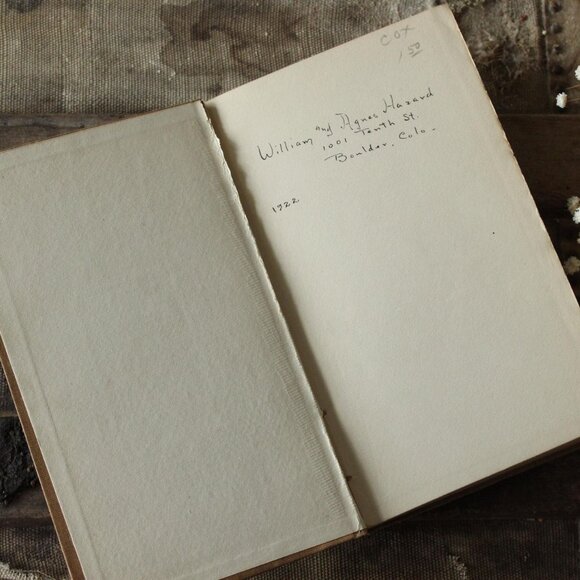 COX
.50
William and Agnes Hazard
1001 Tenth St.
Boulder. Colo.
1922